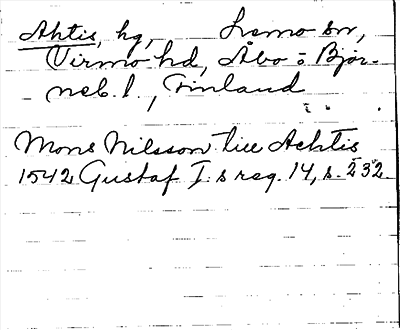 Ahtis, hg, Lemo sn,
Virmo hd, Åbo o Björ-
neb. l., Finland
Mons Nilsson till Achtis
1542 Gustaf I:s reg. 14, s. 232.